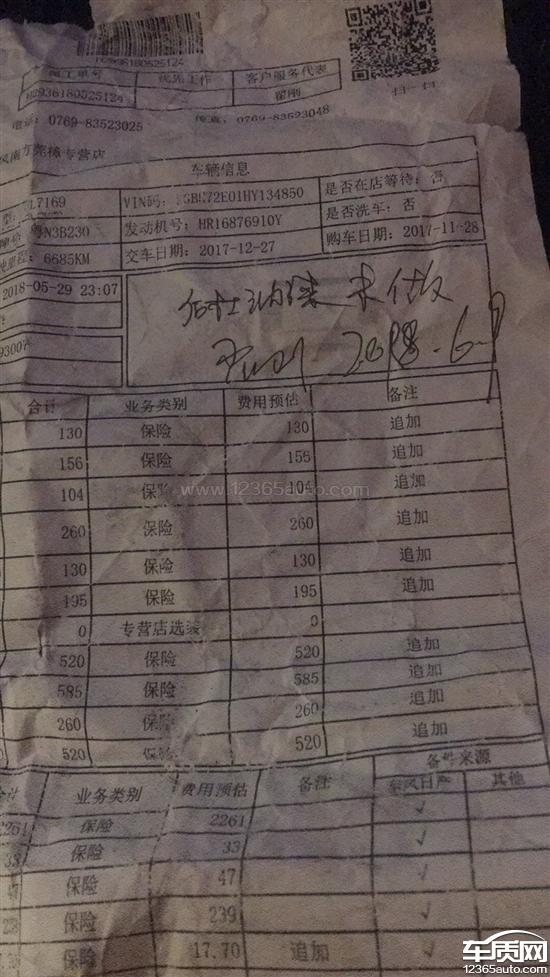 H2936180525124
施工单号 优先工作 客户服务代表
H2936180525124 翟刚 扫一扫
电话: 0769-83523025 传真: 0769-83523048
专营店
车辆信息
L7169 VIN码: GBH72E01HY134850 是否在店等待: 否
N3B230 发动机号: HR16876910Y 是否洗车: 否
6685KM 交车日期: 2017-12-27 购车日期: 2017-11-28
2018-05-29 23:07
未做
93007
2018.6.9
合计 业务类别 费用预估 备注
130 保险 130 追加
156 保险 156 追加
104 保险 104 追加
www.12365auto.com
260 保险 260 追加
130 保险 130 追加
195 保险 195 追加
0 专营店选装 0
520 保险 520 追加
585 保险 585 追加
260 保险 260 追加
520 保险 520 追加
备件来源
合计 业务类别 费用预估 备注 东风日产 其他
2261 保险 2261 ✓
33 保险 33 ✓
47 保险 47 ✓
239 保险 239 ✓
保险 17.70 追加 ✓
车质网
12365auto.com